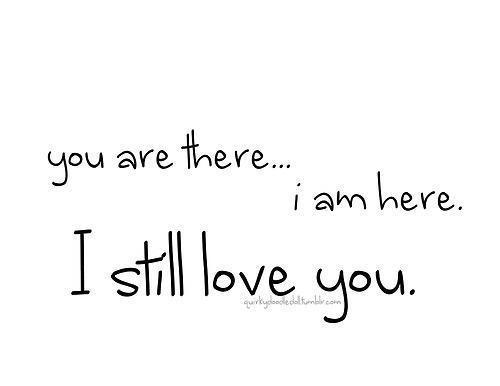 you are there...
i am here.
I still love you.
quirkydoodledoll.tumblr.com